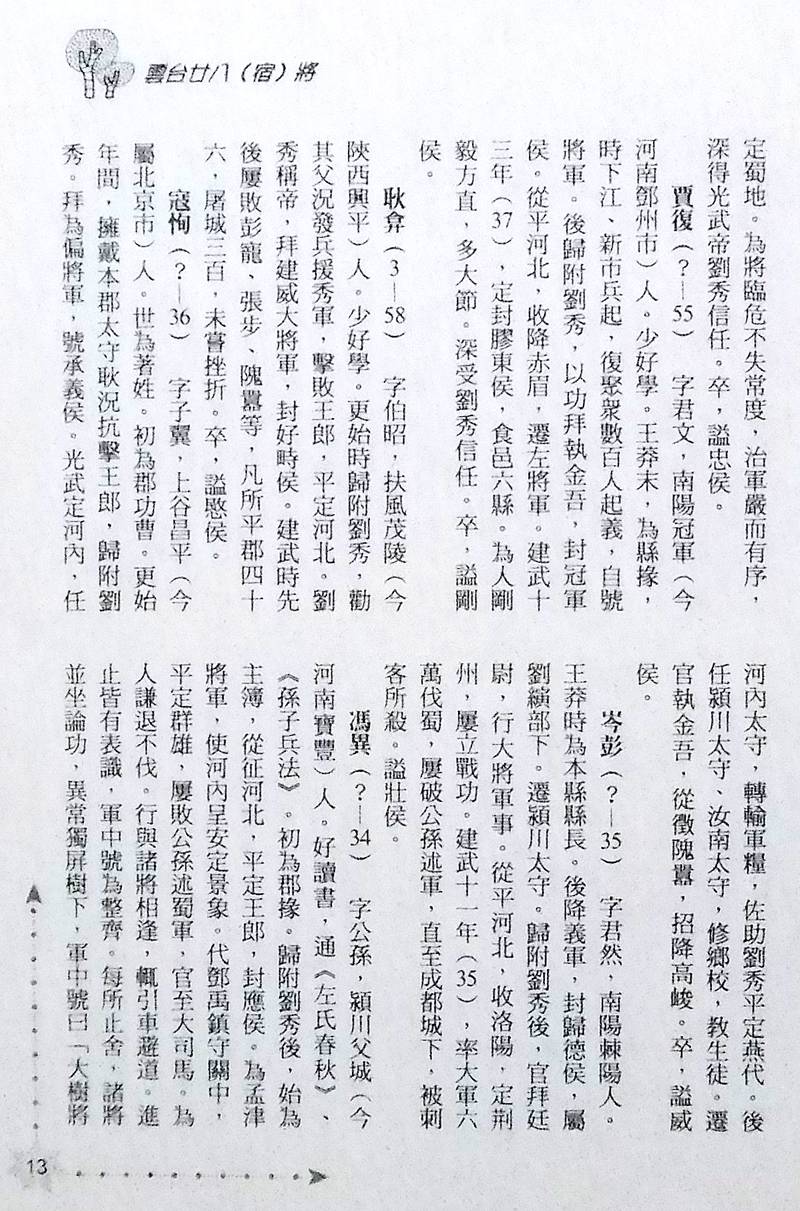 雲台廿八（宿）將
定蜀地。為將臨危不失常度，治軍嚴而有序，
深得光武帝劉秀信任。卒，謚忠侯。
賈復（？—55） 字君文，南陽冠軍（今
河南鄧州市）人。少好學。王莽末，為縣掾，
時下江、新市兵起，復聚衆數百人起義，自號
將軍。後歸附劉秀，以功拜執金吾，封冠軍
侯。從平河北，收降赤眉，遷左將軍。建武十
三年（37），定封膠東侯，食邑六縣。為人剛
毅方直，多大節。深受劉秀信任。卒，謚剛
侯。
耿弇（3—58） 字伯昭，扶風茂陵（今
陝西興平）人。少好學。更始時歸附劉秀，勸
其父況發兵援秀軍，擊敗王郎，平定河北。劉
秀稱帝，拜建威大將軍，封好畤侯。建武時先
後屢敗彭寵、張步、隗囂等，凡所平郡四十
六，屠城三百，未嘗挫折。卒，謚愍侯。
寇恂（？—36） 字子翼，上谷昌平（今
屬北京市）人。世為著姓。初為郡功曹。更始
年間，擁戴本郡太守耿況抗擊王郎，歸附劉
秀。拜為偏將軍，號承義侯。光武定河內，任
河內太守，轉輸軍糧，佐助劉秀平定燕代。後
任潁川太守、汝南太守，修鄉校，教生徒。遷
官執金吾，從徵隗囂，招降高峻。卒，謚威
侯。
岑彭（？—35） 字君然，南陽棘陽人。
王莽時為本縣縣長。後降義軍，封歸德侯，屬
劉縯部下。遷潁川太守。歸附劉秀後，官拜廷
尉，行大將軍事。從平河北，收洛陽，定荆
州，屢立戰功。建武十一年（35），率大軍六
萬伐蜀，屢破公孫述軍，直至成都城下，被刺
客所殺。謚壯侯。
馮異（？—34） 字公孫，潁川父城（今
河南寶豐）人。好讀書，通《左氏春秋》、
《孫子兵法》。初為郡掾。歸附劉秀後，始為
主簿，從征河北，平定王郎，封應侯。為孟津
將軍，使河內呈安定景象。代鄧禹鎮守關中，
平定群雄，屢敗公孫述蜀軍，官至大司馬。為
人謙退不伐。行與諸將相逢，輒引車避道。進
止皆有表識，軍中號為整齊。每所止舍，諸將
並坐論功，異常獨屏樹下，軍中號曰「大樹將
13